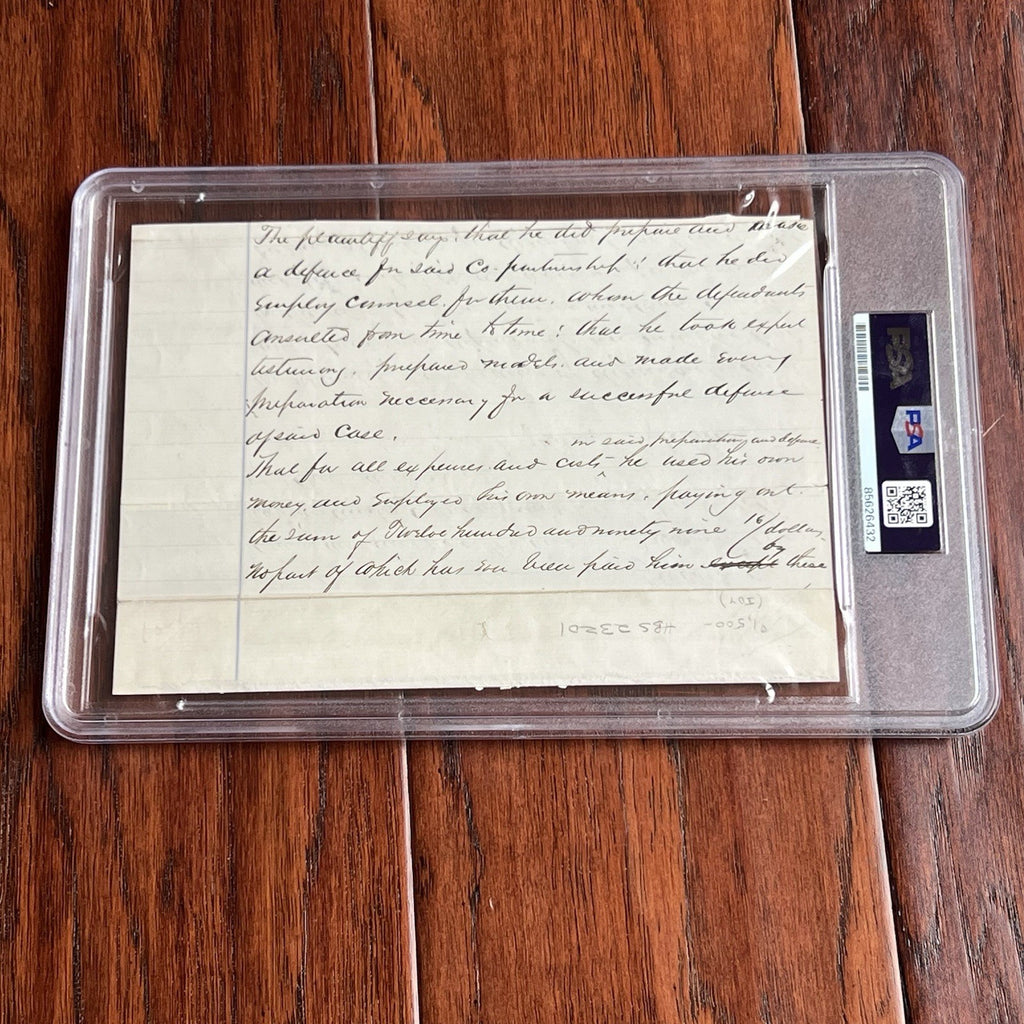 The plaintiff says, that he did prepare and make
a defence for said Co-partnership; that he did
employ counsel for them, whom the defendants
consulted from time to time; that he took expert
testimony, prepared models, and made every
preparation neccessary for a successful defense
of said Case.
in said preparation and defense
That for all expenses and costs ^ he used his own
money and employed his own means, paying out
the sum of Twelve hundred and ninety nine 16/ dollars
by
no part of which has ever been paid him except these
(IDY)
1,500-
HBS 23201
PSA
PSA
85626432